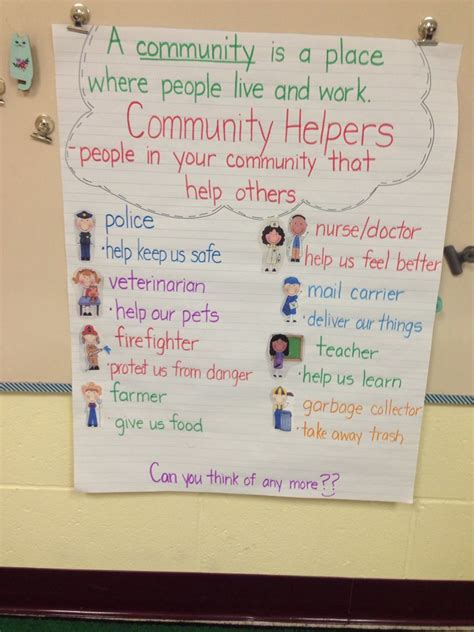 A community is a place
where people live and work.
Community Helpers
-people in your community that
help others
police
•help keep us safe
veterinarian
•help our pets
firefighter
•protect us from danger
farmer
•give us food
nurse/doctor
•help us feel better
mail carrier
•deliver our things
teacher
•help us learn
garbage collector
•take away trash
Can you think of any more??